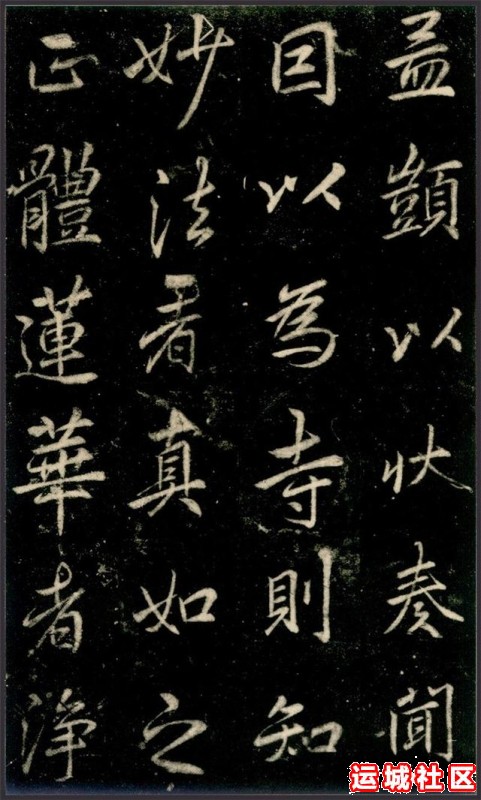 益顗以状奏聞
因以為寺則知
妙法者真如之
正體蓮華者淨
运城社区